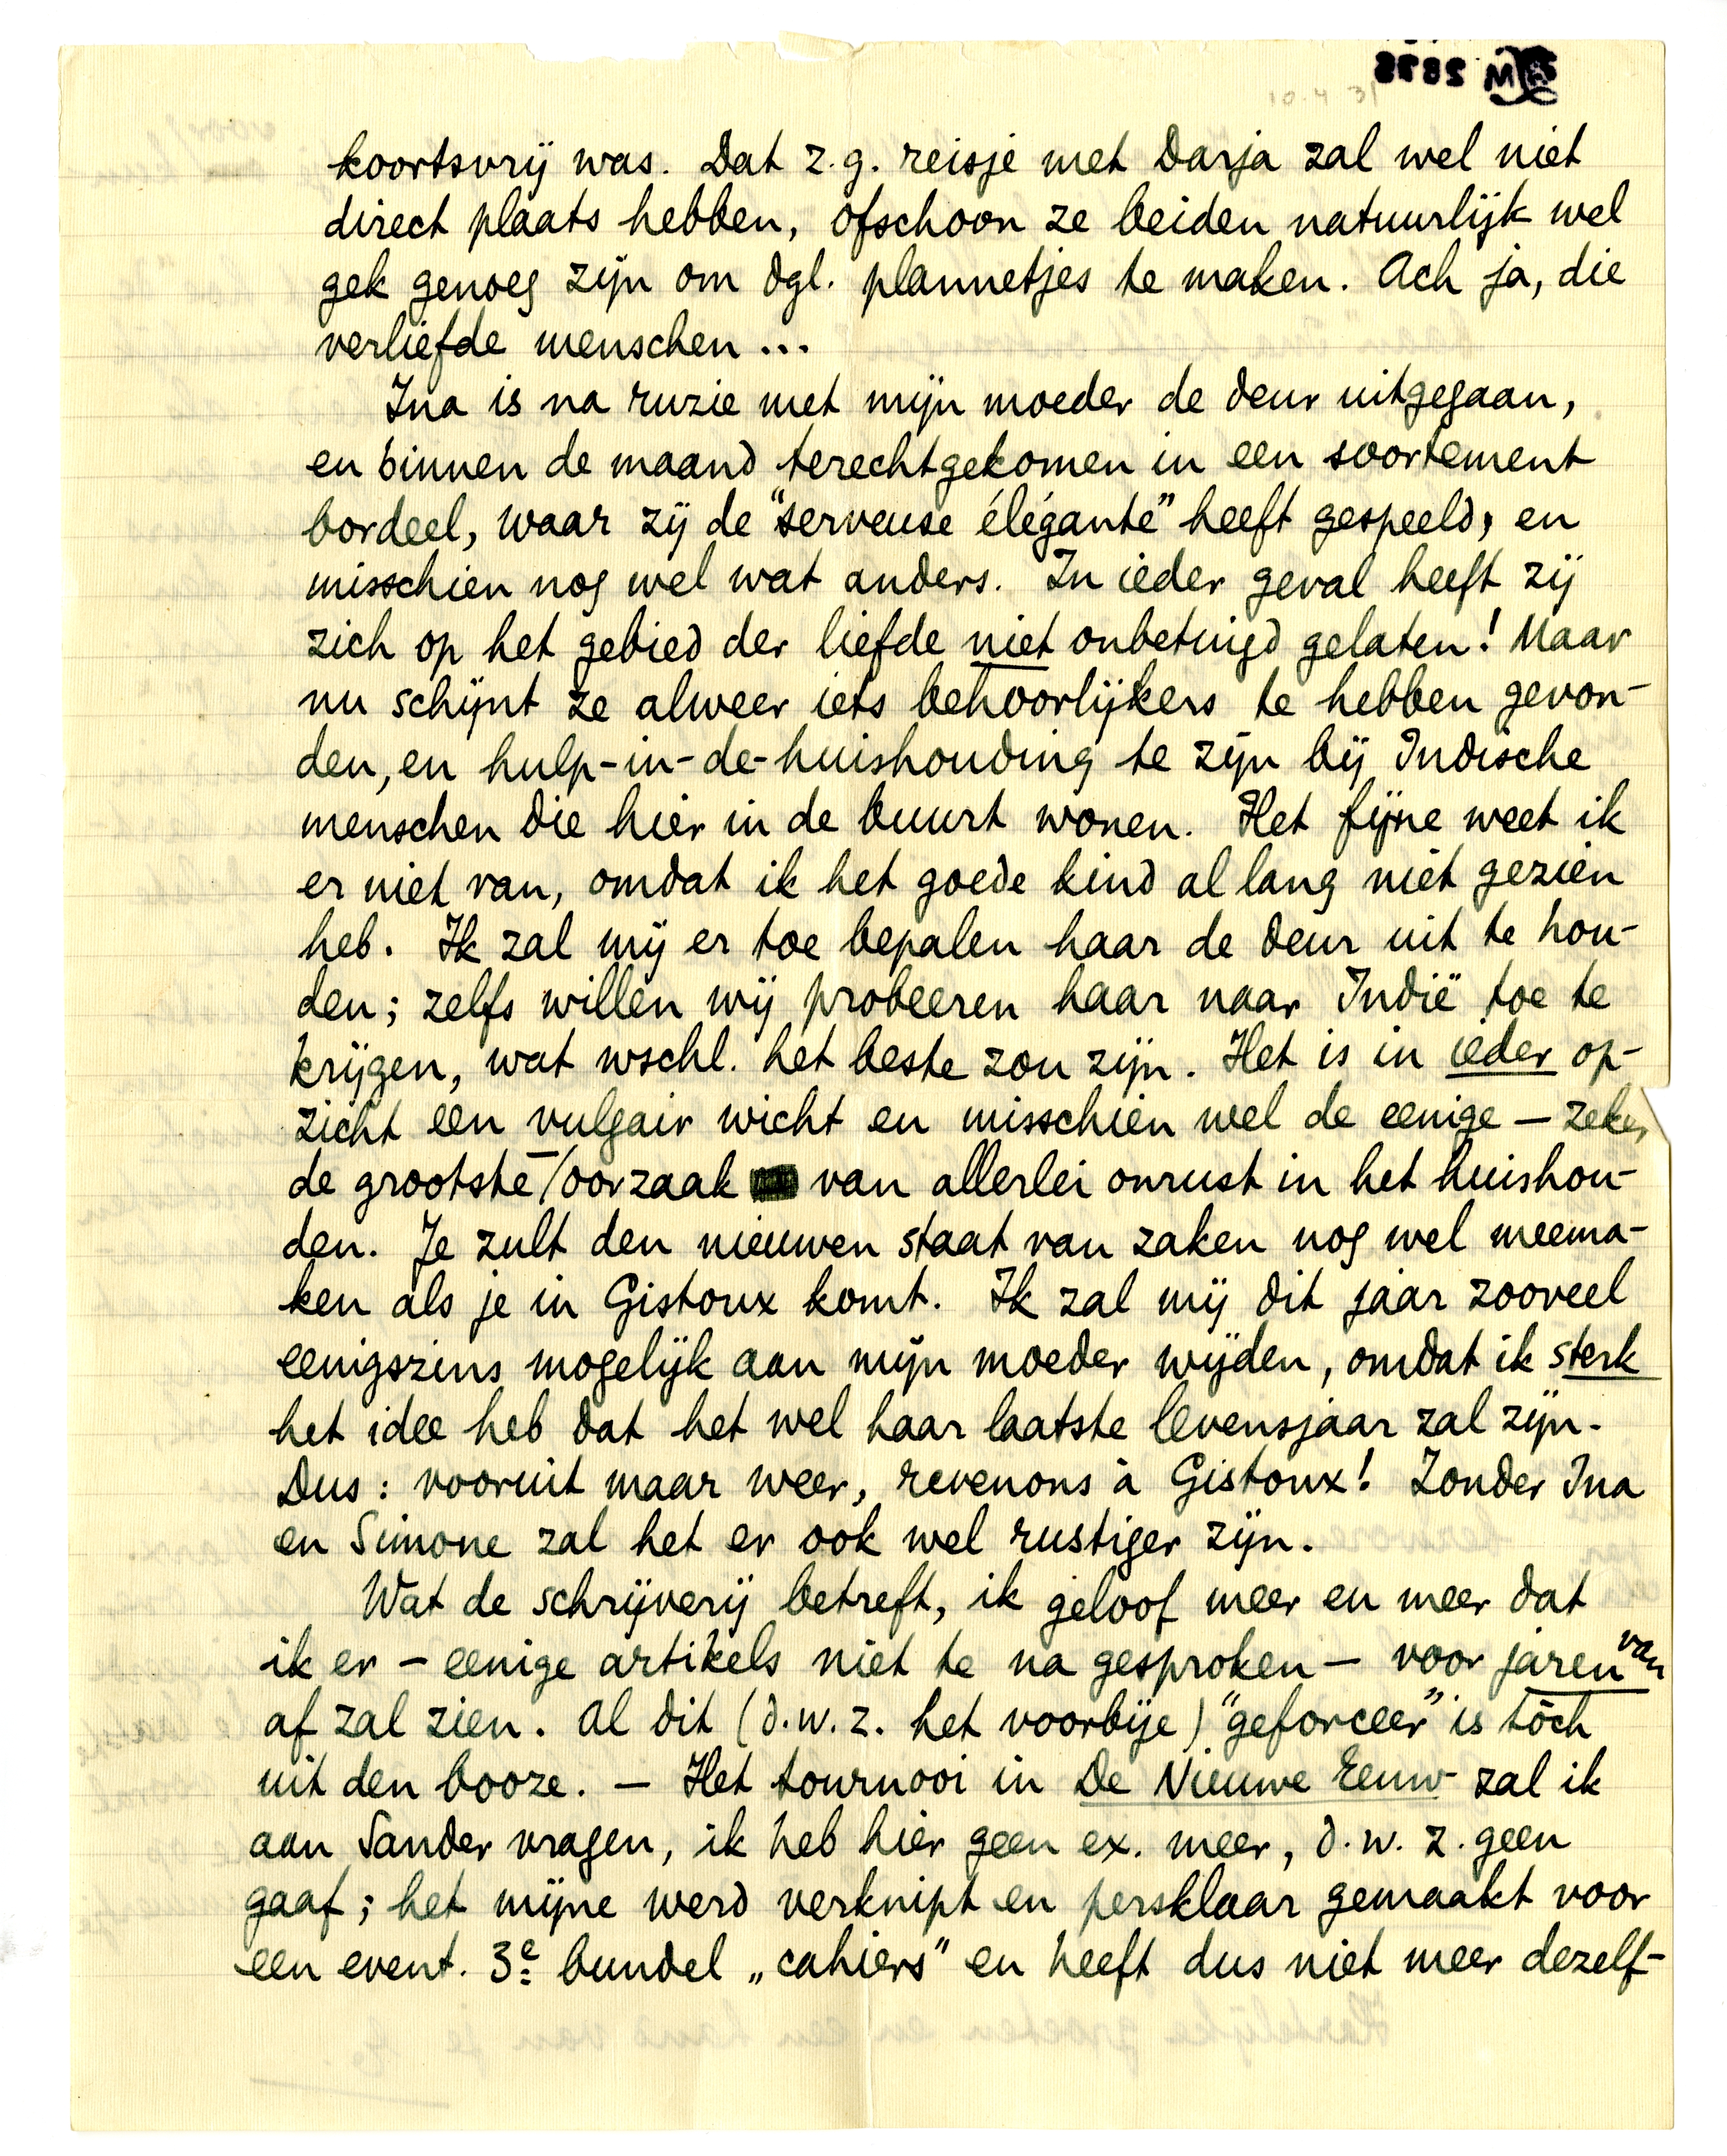 koortsvrij was. Dat z.g. reisje met Darja zal wel niet
direct plaats hebben, ofschoon ze beiden natuurlijk wel
gek genoeg zijn om dgl. plannetjes te maken. Ach ja, die
verliefde menschen...
Ina is na ruzie met mijn moeder de deur uitgegaan,
en binnen de maand terechtgekomen in een soortement
bordeel, waar zij de "serveuse élégante" heeft gespeeld, en
misschien nog wel wat anders. In ieder geval heeft zij
zich op het gebied der liefde niet onbetuigd gelaten! Maar
nu schijnt ze alweer iets behoorlijkers te hebben gevon-
den, en hulp-in-de-huishouding te zijn bij Indische
menschen die hier in de buurt wonen. Het fijne weet ik
er niet van, omdat ik het goede kind al lang niet gezien
heb. Ik zal mij er toe bepalen haar de deur uit te hou-
den; zelfs willen wij probeeren haar naar Indië toe te
krijgen, wat wschl. het beste zou zijn. Het is in ieder op-
zicht een vulgair wicht en misschien wel de eenige – zeker
de grootste –/oorzaak van allerlei onrust in het huishou-
den. Je zult den nieuwen staat van zaken nog wel meema-
ken als je in Gistoux komt. Ik zal mij dit jaar zooveel
eenigszins mogelijk aan mijn moeder wijden, omdat ik sterk
het idee heb dat het wel haar laatste levensjaar zal zijn.
Dus: vooruit maar weer, revenons à Gistoux! Zonder Ina
en Simone zal het er ook wel rustiger zijn.
Wat de schrijverij betreft, ik geloof meer en meer dat
ik er – eenige artikels niet te na gesproken – voor jaren van
af zal zien. Al dit (d.w.z. het voorbije) "geforceer" is tòch
uit den booze. – Het tournooi in De Nieuwe Eeuw zal ik
aan Sander vragen, ik heb hier geen ex. meer, d.w.z. geen
gaaf; het mijne werd verknipt en persklaar gemaakt voor
een event. 3e bundel „cahiers" en heeft dus niet meer dezelf-